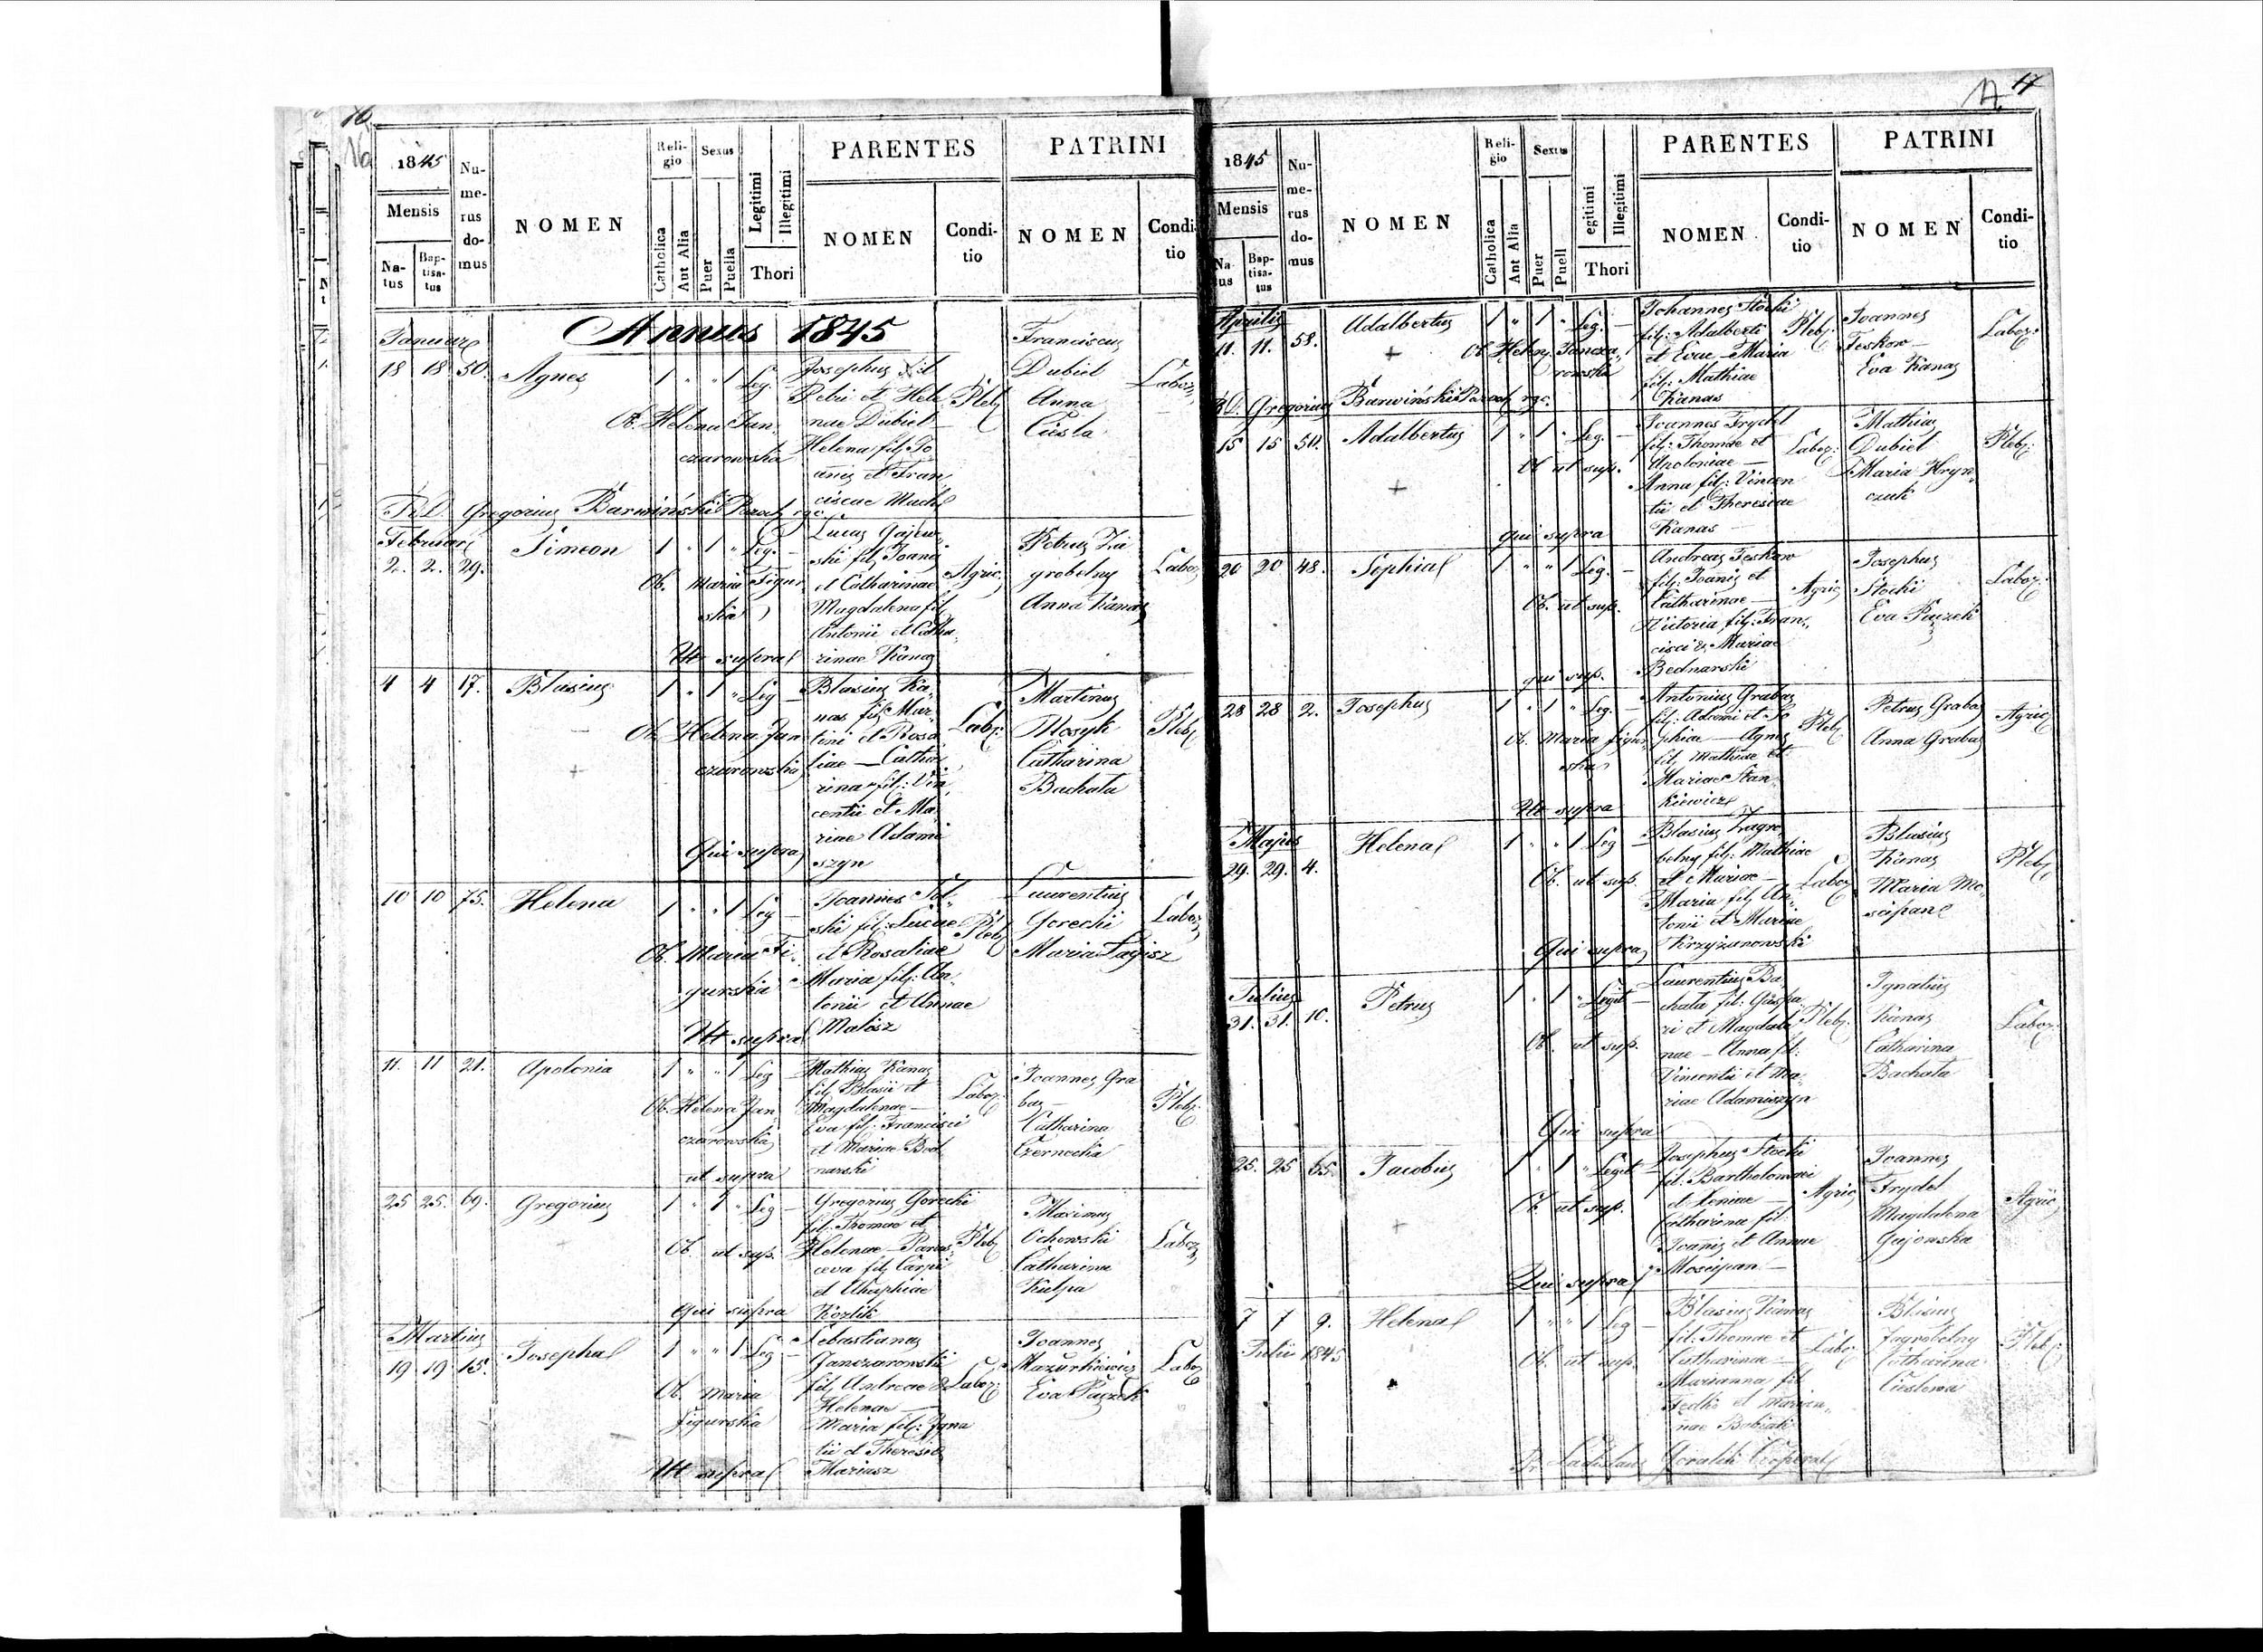 16
16a
1845
Mensis
Na-
tus
Bap-
tisa-
tus
Nu-
me-
rus
do-
mus
NOMEN
Reli-
gio
Catholica
Aut Alia
Sexus
Puer
Puella
Legitimi
Illegitimi
Thori
PARENTES
NOMEN
Condi-
tio
PATRINI
NOMEN
Condi-
tio
Annus 1845
Januar
18 18 50. Agnes 1 " " 1 Leg. -
Ob. Helena Jan,
czarowska
Josephus fil
Petri et Hele
nae Dubiel
Helena fil Jo
anis et Fran
ciscae
Pleb
Franciscus
Dubiel
Anna
Ciesla
Labor
R. D. Gregorius Barwiński Paroch
Februar
2. 2. 29. Simeon 1 " 1 " Leg. -
Ob. Maria Figur,
ska
Ut supra
Lucas Gajew,
ski fil Joanis
et Catharinae
Magdalena fil
Antonii et Catha,
rinae Kanas
Agric
Petrus Za
grobelny
Anna Kanas
Labor
4 4 17. Blasius 1 " 1 " Leg -
Ob. Helena Jan
czarowska
Qui supra
Blasius Ka,
nas fil Mar,
tini et Rosa
liae — Catha
rina fil: Vin,
centii et Ma,
riae Adami
szyn
Labor:
Martinus
Mosyk
Catharina
Bachata
Pleb
10 10 75. Helena 1 " " 1 Leg -
Ob. Maria Fi,
gurska
Ut supra
Joannes
ski fil: Lucae
et Rosaliae
Maria fil: An,
tonii et Annae
Małosz
Pleb
Laurentius
Gorecki
Maria Łagisz
Labor
11. 11 21. Apolonia 1 " " 1 Leg -
Ob. Helena Jan
czarowska
ut supra
Mathias Kanas
fil Blasii et
Magdalenae —
Eva fil: Francisci
et Mariae Bed
narski
Labor
Joannes Gra
bas —
Catharina
Czernecka
Pleb:
25 25. 69. Gregorius 1 " 1 " Leg -
Ob. ut sup.
qui supra
Gregorius Gorecki
fil: Thomae et
Helenae — Paras,
ceva fil
et
Kozlik
Pleb
Maximus
Ochowski
Catharina
Kulpa
Labor
Martius
19 19 15. Josepha 1 " " 1 Leg -
Ob. Maria
Figurska
Ut supra
Sebastianus
Janczarowski
fil Andreae &
Helenae —
Maria fil: Igna
tii et Theresiae
Mariasz
Labor:
Joannes
Mazurkiewicz
Eva Puzek
Labor
17
17
1845
Mensis
Na-
tus
Bap-
tisa-
tus
Nu-
me-
rus
do-
mus
NOMEN
Reli-
gio
Catholica
Ant Alia
Sexus
Puer
Puell
egitimi
Illegitimi
Thori
PARENTES
NOMEN
Condi-
tio
PATRINI
NOMEN
Condi-
tio
Aprilis
11. 11. 58. Adalbertus 1 " 1 " Leg. -
Ob. Helena Jancza,
rowska
Johannes Stocki
fil: Adalberti
et Evae — Maria
fil: Mathiae
Kanas
Pleb
Joannes
Feskow —
Eva Kanas
Labor:
R. D. Gregorius Barwiński Paroch
15 15 50. Adalbertus 1 " 1 " Leg. -
Ob. ut sup.
qui supra
Joannes Frydel
fil: Thomae et
Apoloniae —
Anna fil: Vincen
tii et Theresiae
Kanas —
Labor:
Mathias
Dubiel
Maria Hryn,
czuk
Pleb:
20 20 48. Sophia 1 " " 1 Leg. -
Ob. ut sup.
qui sup.
Andreas Feskow
fil: Joanis et
Catharinae —
Victoria fil: Fran,
cisci & Mariae
Bednarski
Agric
Josephus
Stocki
Eva Puzek
Labor:
28 28 2. Josephus 1 " 1 " Leg. -
Ob. Maria Figur,
ska
Ut supra
Antonius Grabas
fil: Adami et So
phiae — Agnes
fil, Mathiae et
Mariae Stan
kiewicz
Pleb
Petrus Grabas
Anna Grabas
Agric
Majus
29. 29. 4. Helena 1 " " 1 Leg -
Ob. ut sup.
Qui supra
Blasius Zagro,
belny fil: Mathiae
et Mariae —
Maria fil, An,
tonii et Mariae
Krzyżanowski
Labor
Blasius
Kanas
Maria Mo,
scipan
Pleb
Julius
31. 31. 10. Petrus 1 " 1 " Legit -
Ob. ut sup.
Qui supra
Laurentius Ba,
chata fil: Gaspa
ri et Magdale
nae — Anna fil:
Vincentii et Ma,
riae Adamiszyn
Pleb:
Ignatius
Kanas
Catharina
Bachata
Labor:
25. 25 65. Jacobus 1 " 1 " Legit -
Ob. ut sup.
Qui supra
Josephus Stocki
fil: Bartholomaei
et Xeniae —
Catharina fil:
Joanis et Annae
Moscipan —
Agric
Joannes
Frydel
Magdalena
Gajowska
Agric
7 7 9. Helena 1 " " 1 Leg -
Julii 1845
Ob. ut sup.
Blasius Kanas
fil: Thomae et
Catharinae —
Marianna fil
et Marian,
nae
Labor
Blasius
Zagrobelny
Catharina
Cieslowa
Pleb:
Goralik Cooperat